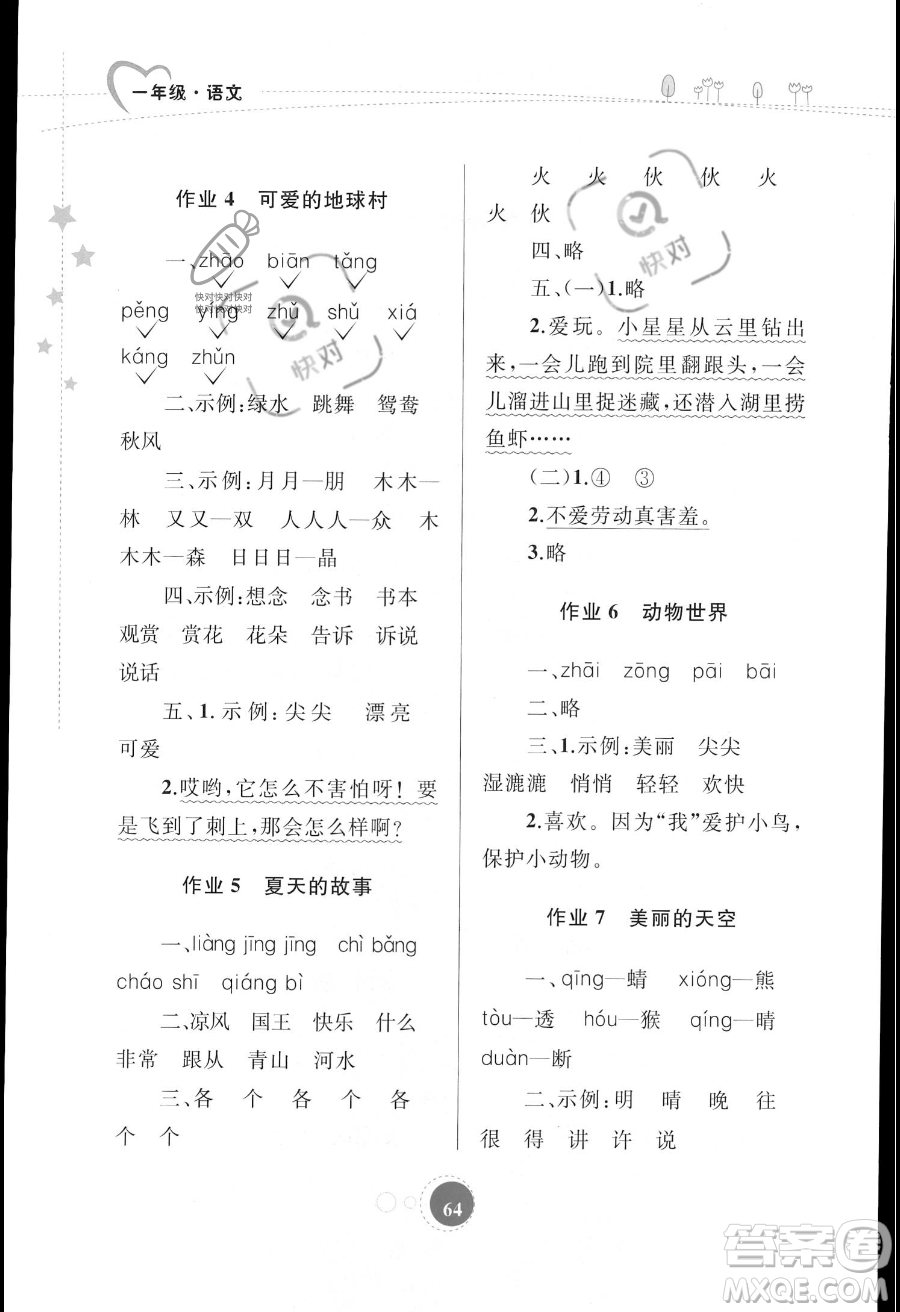 一年级·语文
作业 4 可爱的地球村
一、zhāo biān tǎng
pěng yíng zhǔ shǔ xiá
káng zhǔn
二、示例:绿水 跳舞 鸳鸯
秋风
三、示例:月月—朋 木木—
林 又又—双 人人人—众 木
木木—森 日日日—晶
四、示例:想念 念书 书本
观赏 赏花 花朵 告诉 诉说
说话
五、1.示例:尖尖 漂亮
可爱
2.哎哟,它怎么不害怕呀!要
是飞到了刺上,那会怎么样啊?
作业 5 夏天的故事
一、liàng jīng jīng chì bǎng
cháo shī qiáng bì
二、凉风 国王 快乐 什么
非常 跟从 青山 河水
三、各 个 个 各
个 个
火 火 伙 伙 火
火 伙
四、略
五、(一)1.略
2.爱玩。小星星从云里钻出
来,一会儿跑到院里翻跟头,一会
儿溜进山里捉迷藏,还潜入湖里捞
鱼虾……
(二)1.④ ③
2.不爱劳动真害羞。
3.略
作业 6 动物世界
一、zhāi zōng pāi bāi
二、略
三、1.示例:美丽 尖尖
湿漉漉 悄悄 轻轻 欢快
2.喜欢。因为“我”爱护小鸟,
保护小动物。
作业 7 美丽的天空
一、qīng—蜻 xióng—熊
tòu—透 hóu—猴 qíng—晴
duàn—断
二、示例:明 晴 晚 往
很 得 讲 许 说
64
快对
快对
快对
快对快对快对
快对快对快对
答案圈
MXQE.COM